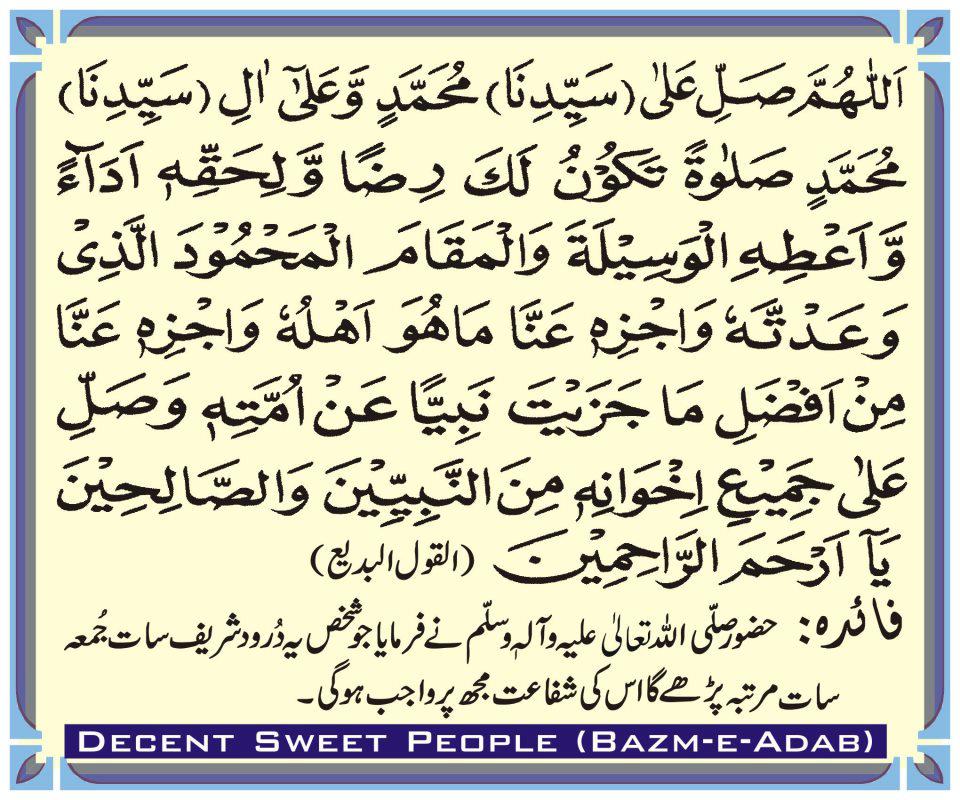 اَللّٰهُمَّ صَلِّ عَلٰی (سَیِّدِنَا) مُحَمَّدٍ وَّعَلٰٓی اٰلِ (سَیِّدِنَا)
مُحَمَّدٍ صَلٰوةً تَكُوْنُ لَكَ رِضًا وَّلِحَقِّهٖ اَدَآءً
وَّاَعْطِهِ الْوَسِیْلَةَ وَالْمَقَامَ الْمَحْمُوْدَ الَّذِیْ
وَعَدْتَّهٗ وَاجْزِهٖ عَنَّا مَاهُوَ اَهْلُهٗ وَاجْزِهٖ عَنَّا
مِنْ اَفْضَلِ مَا جَزَیْتَ نَبِیًّا عَنْ اُمَّتِهٖ وَصَلِّ
عَلٰی جَمِیْعِ اِخْوَانِهٖ مِنَ النَّبِیِّیْنَ وَالصَّالِحِیْنَ
یَآ اَرْحَمَ الرَّاحِمِیْنَ (القول البدیع)
فائدہ: حضور صلّی اللہ تعالیٰ علیہ وآلہٖ وسلّم نے فرمایا جو شخص یہ دُرود شریف سات جُمعہ
سات مرتبہ پڑھے گا اس کی شفاعت مجھ پر واجب ہوگی۔
DECENT SWEET PEOPLE (BAZM-E-ADAB)